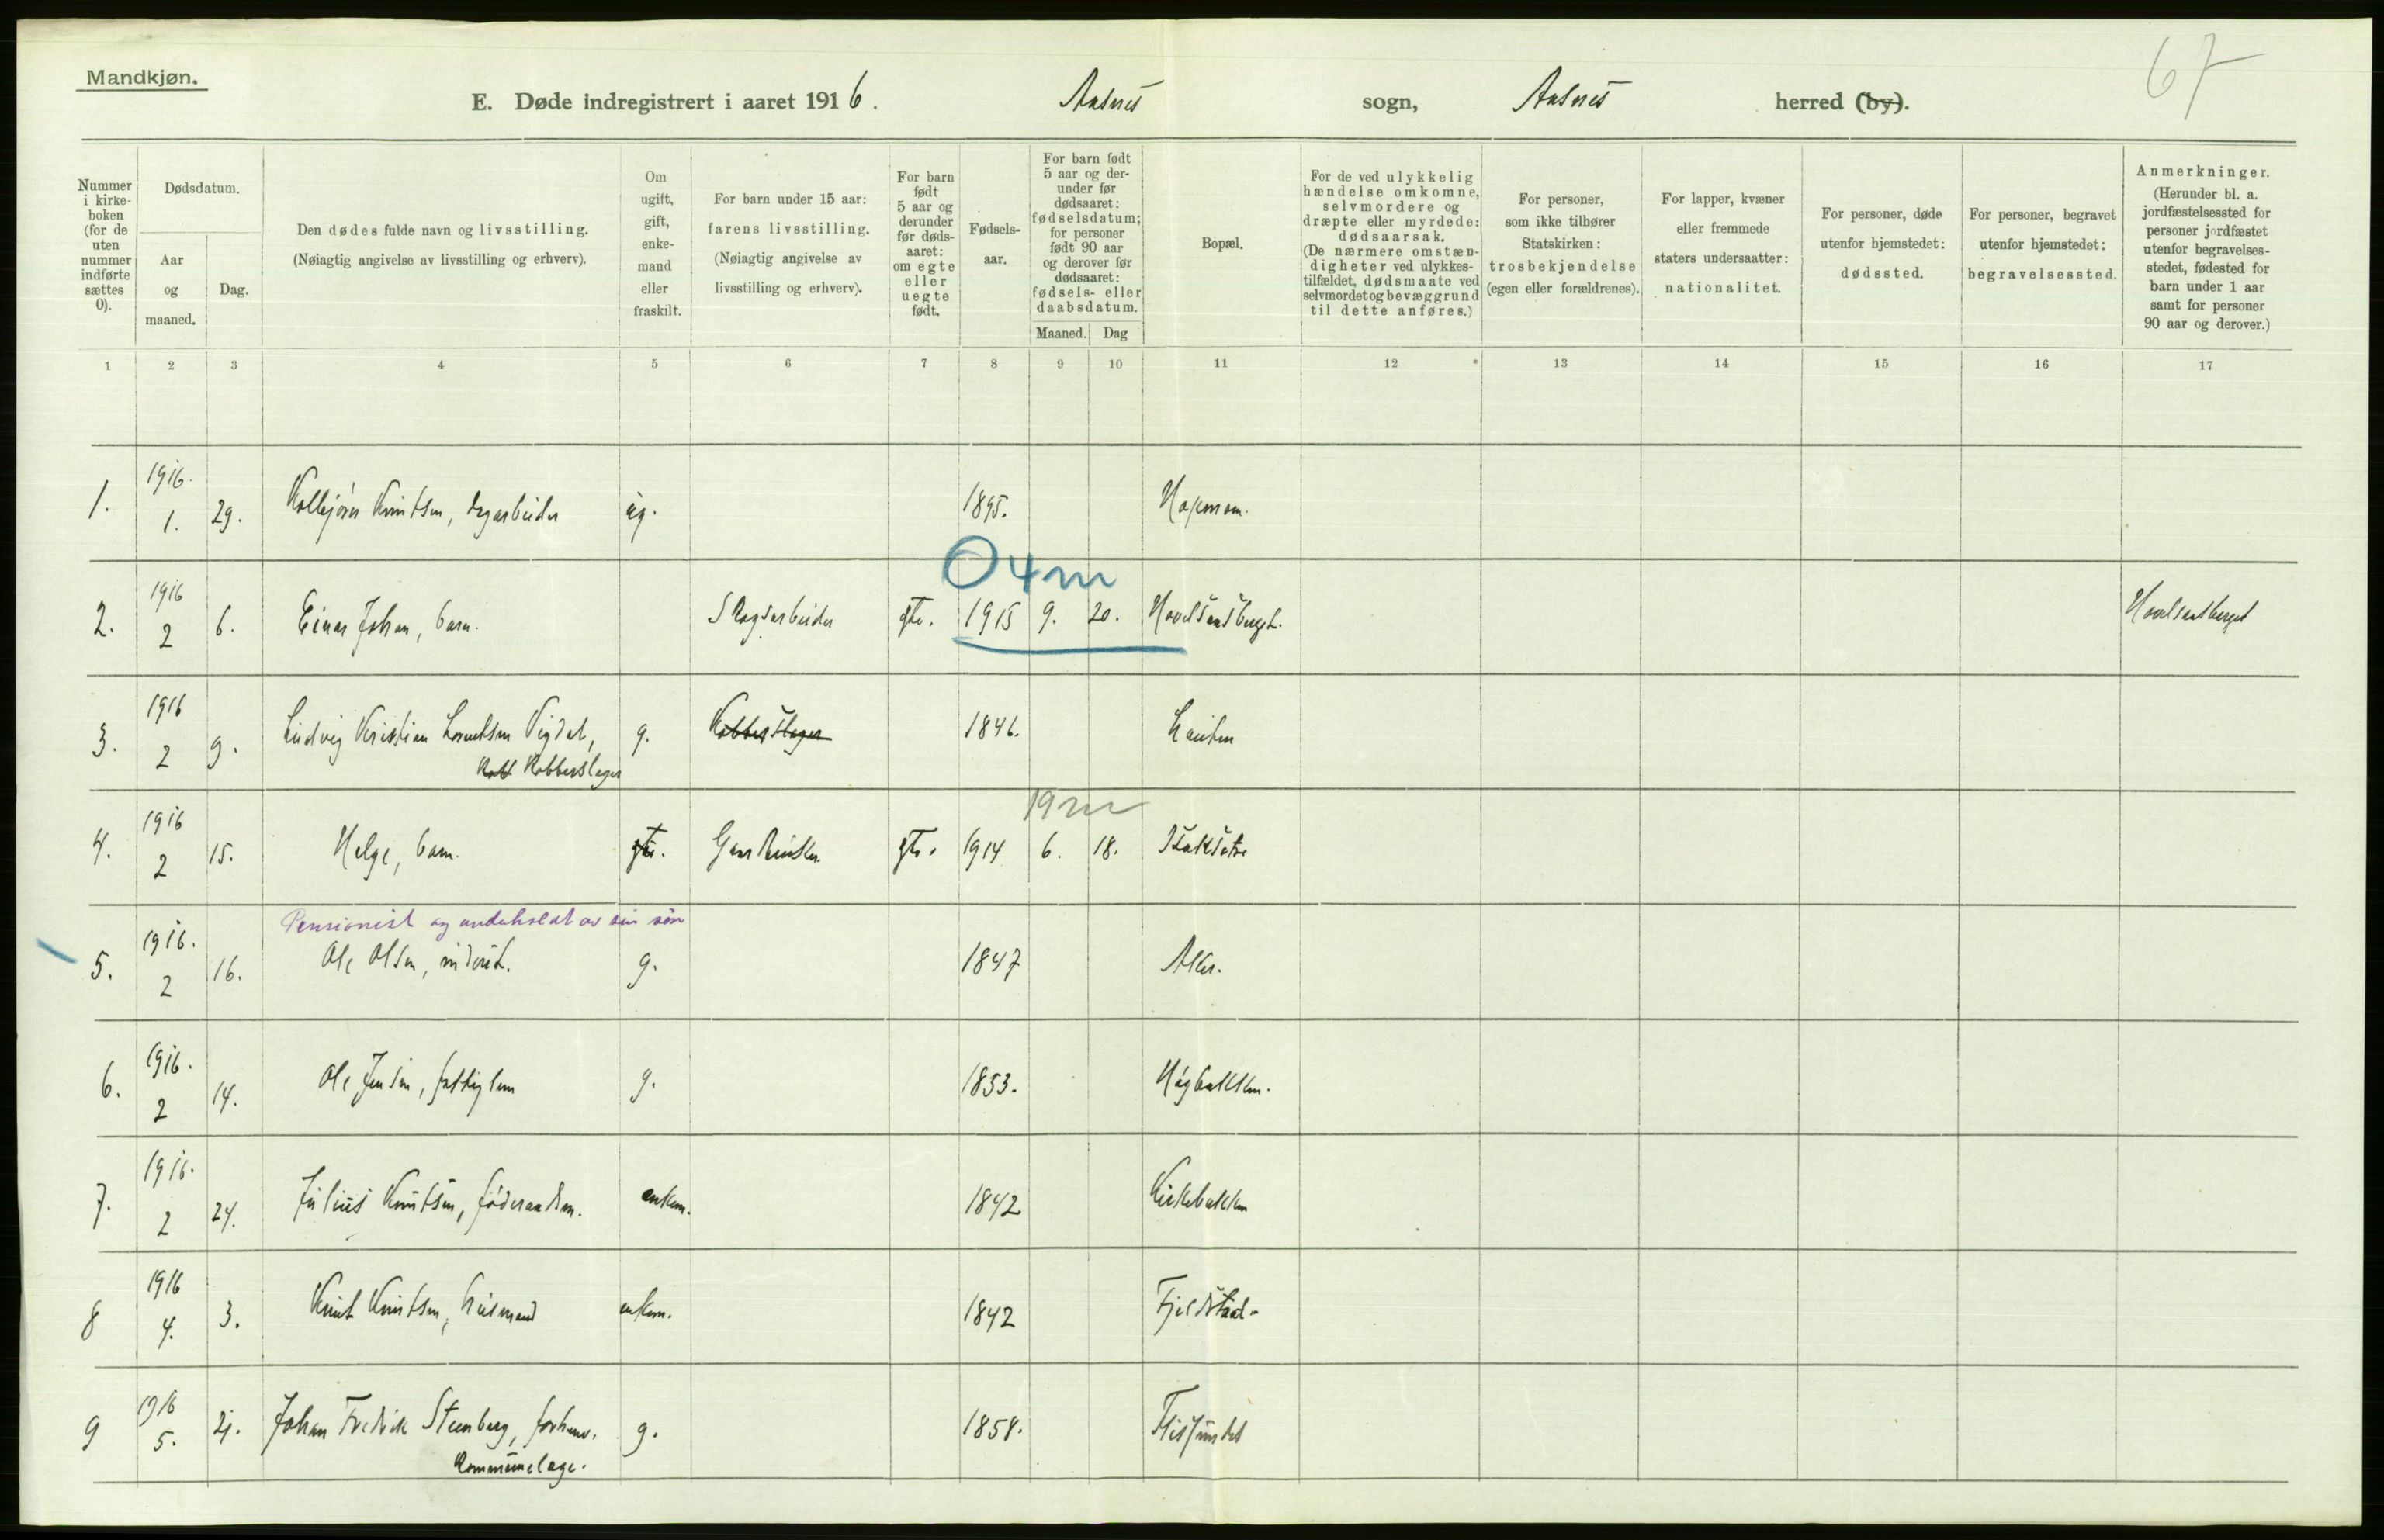 Mandkjøn.
67
E. Døde indregistrert i aaret 1916. Aasnes sogn, Aasnes herred (by).
Nummer i kirkeboken (for de uten nummer indførte sættes 0).
Dødsdatum.
Aar og maaned.
Dag.
Den dødes fulde navn og livsstilling.
(Nøiagtig angivelse av livsstilling og erhverv).
Om ugift, gift, enkemand eller fraskilt.
For barn under 15 aar: farens livsstilling. (Nøiagtig angivelse av livsstilling og erhverv).
For barn født 5 aar og derunder før dødsaaret: om egte eller uegte født.
Fødselsaar.
For barn født 5 aar og derunder før dødsaaret: fødselsdatum; for personer født 90 aar og derover før dødsaaret: fødsels- eller daabsdatum.
Maaned. Dag
Bopæl.
For de ved ulykkelig hændelse omkomne, selvmordere og dræpte eller myrdede: dødsaarsak. (De nærmere omstændigheter ved ulykkestilfældet, dødsmaate ved selvmordet og bevæggrund til dette anføres.)
For personer, som ikke tilhører Statskirken: trosbekjendelse (egen eller forældrenes).
For lapper, kvæner eller fremmede staters undersaatter: nationalitet.
For personer, døde utenfor hjemstedet: dødssted.
For personer, begravet utenfor hjemstedet: begravelsessted.
Anmerkninger. (Herunder bl. a. jordfæstelsessted for personer jordfæstet utenfor begravelsesstedet, fødested for barn under 1 aar samt for personer 90 aar og derover.)
1 2 3 4 5 6 7 8 9 10 11 12 13 14 15 16 17
1. 1916. 1. 29. Kolbjørn Knutsen, dagarbeider ug. 1895.
0 4 m
2. 1916 2 6. Einar Johan, barn. Skogsarbeider gte. 1915 9. 20.
3. 1916 2 9. Ludvig Kristian Lorentsen Vigdal, g. Kobberslager 1846. Lauten
Kobberslager
19 m
4. 1916 2 15. Helge, barn. gte. Gaardbruker gte. 1914 6. 18.
Pensionist og underholdt av sin søn
5. 1916. 2 16. Ole Olsen, inderst. g. 1847
6. 1916. 2 14. Ole Jensen, fattiglem g. 1853. Høgbakken.
7. 1916. 2 24. Julius Knutsen, føderaadsm. enkem. 1842 Kirkebakken
8 1916 4. 3. Knut Knutsen, husmand enkem. 1842 Fjeldstad
9 1916 5. 21. Johan Fredrik Steenberg, forhenv. g. 1858. Flisjundet
Kommunelæge.